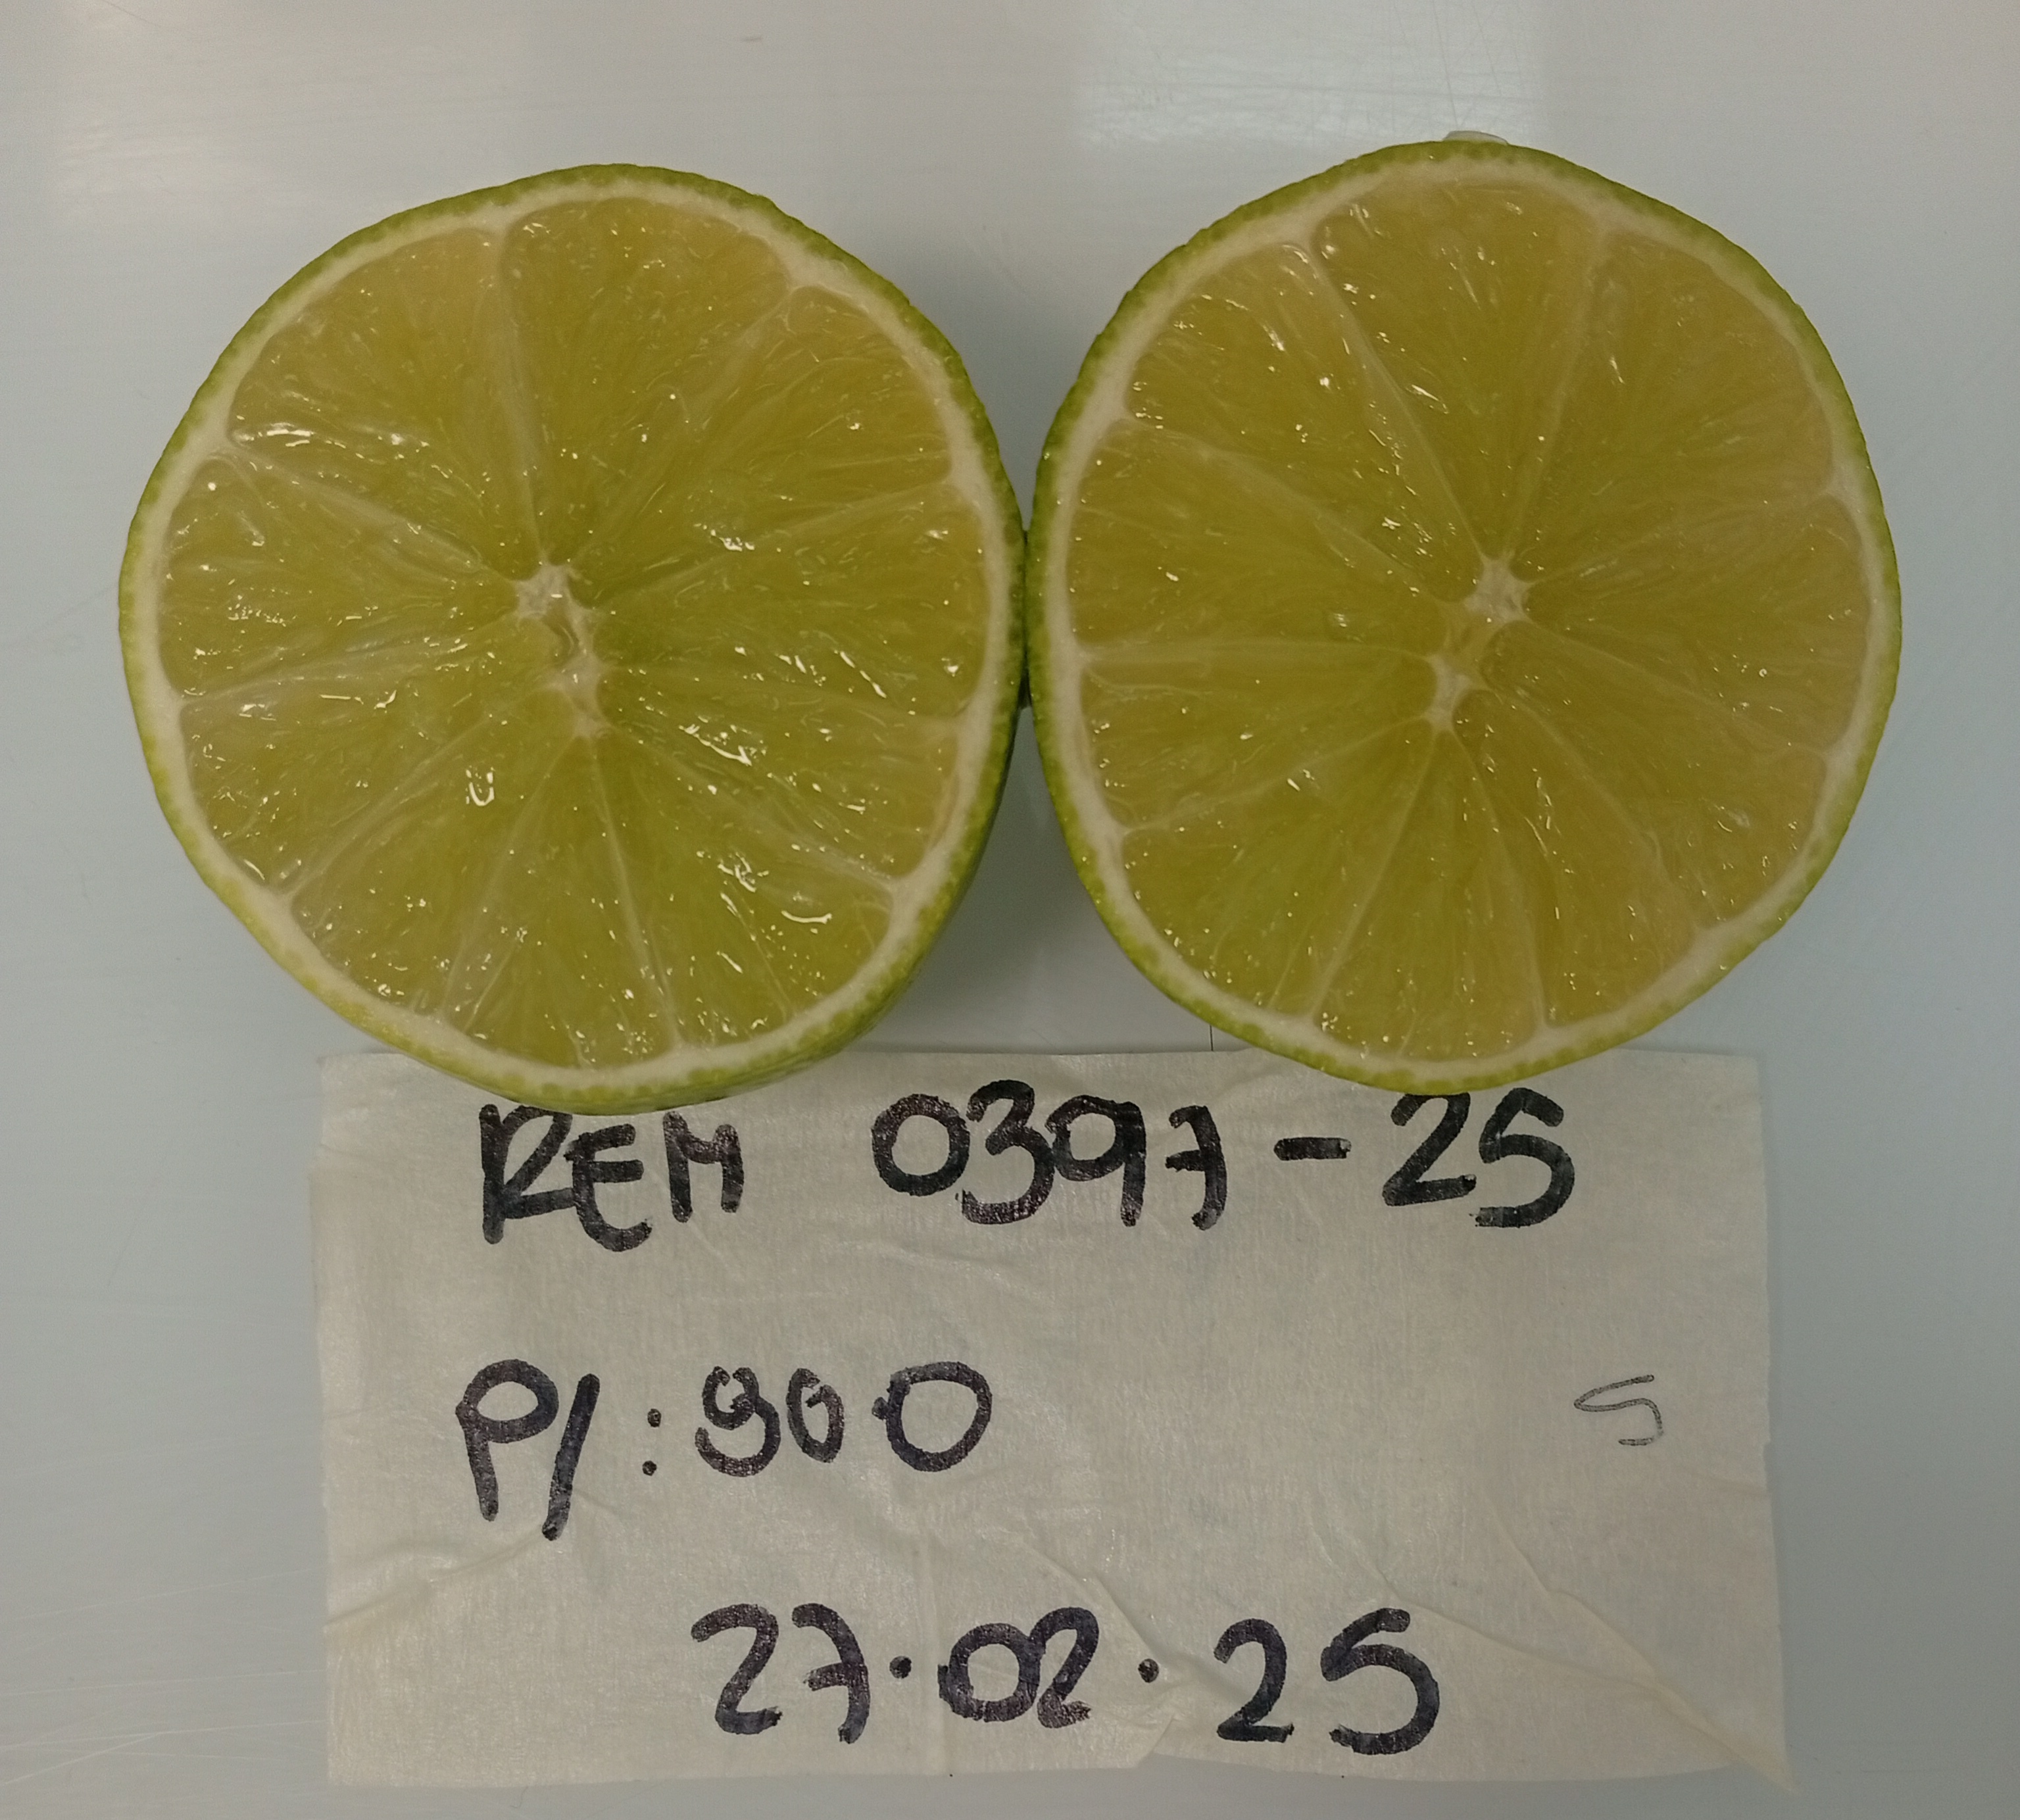 REM 0397-25
P/:900 5
27.02.25